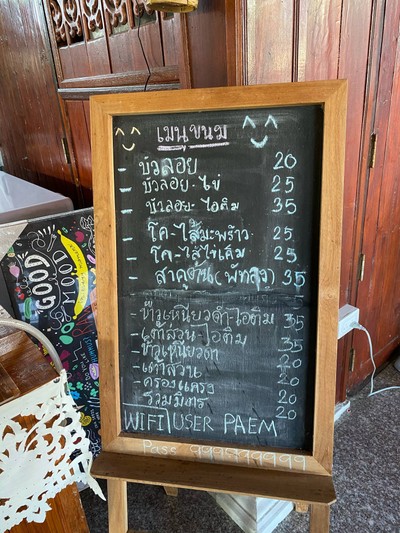 เมนูขนม
- บัวลอย 20
- บัวลอย-ไข่ 25
- บัวลอย-ไอติม 35
- โค-ไส้มะพร้าว 25
- โค-ไส้ไข่เค็ม 25
- สาคูต้น(พัทลุง) 35
- ข้าวเหนียวดำ-ไอติม 35
- เต้าส่วน-ไอติม 35
- ข้าวเหนียวดำ 20
- เต้าส่วน 20
- ครองแครง 20
- รวมมิตร 20
WIFI USER PAEM
Pass 9999999999
GOOD
MOOD